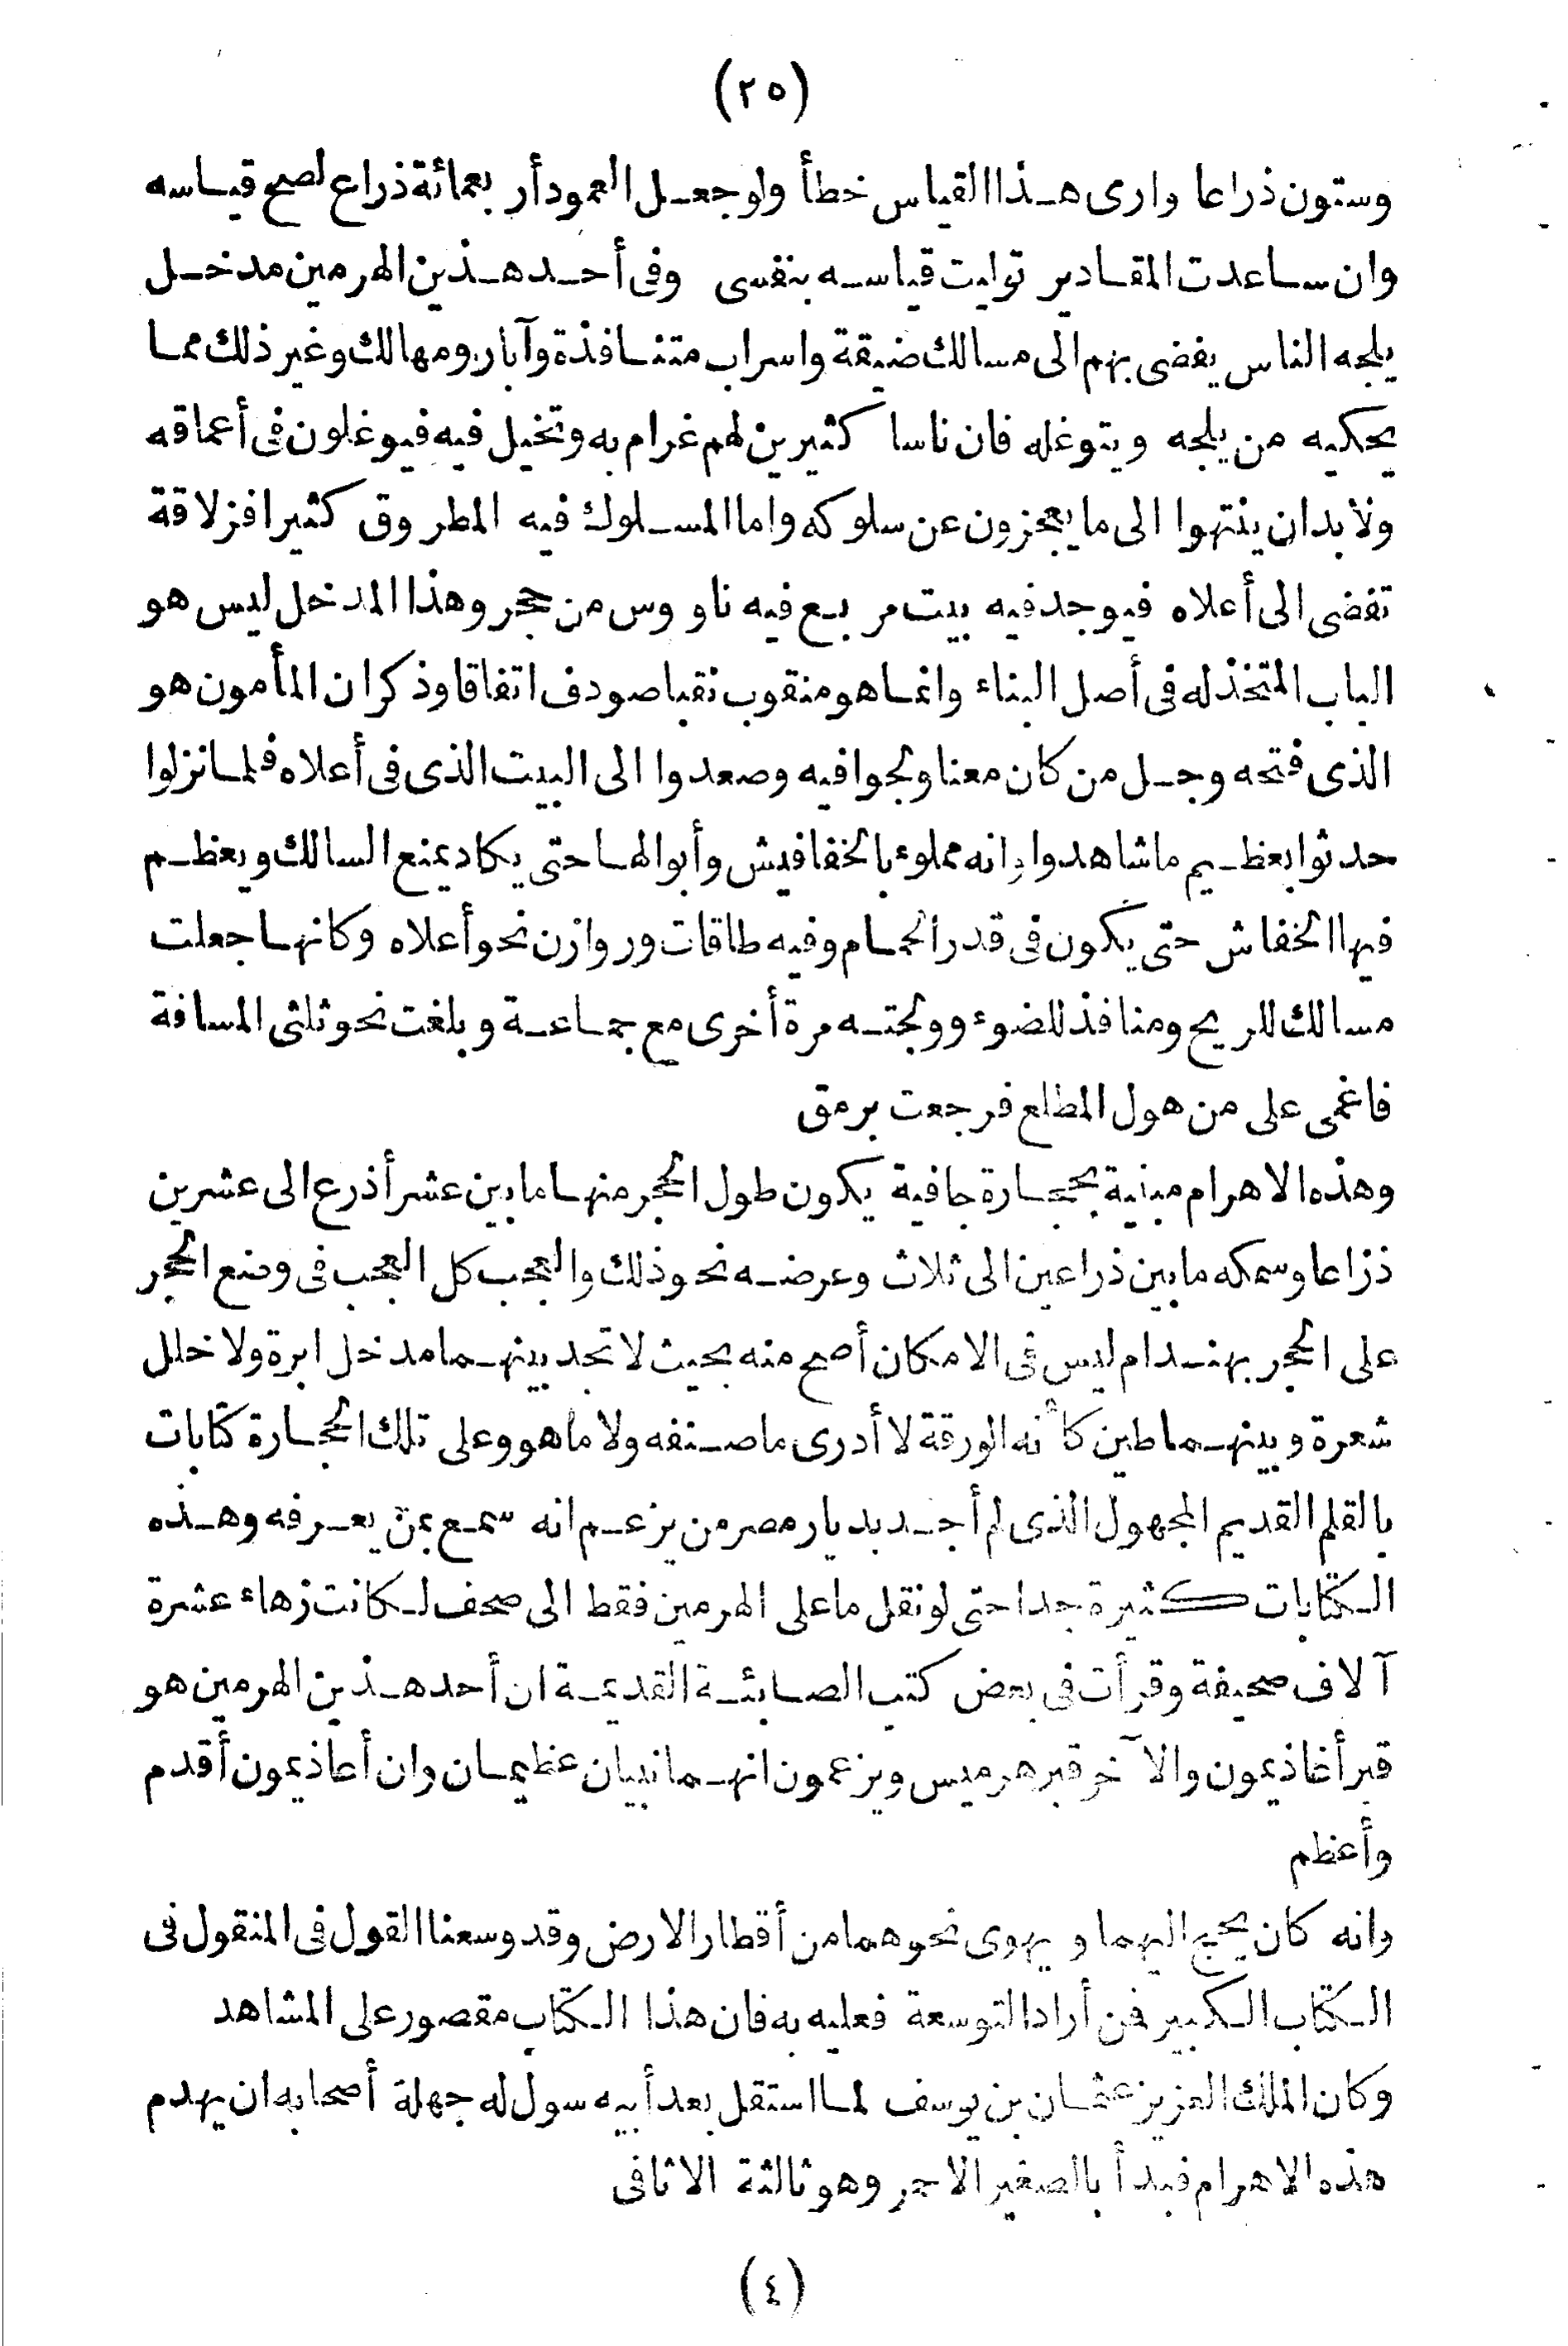 (٢٥)
وستون ذراعا وارى هذا القياس خطأ ولو جعل العمود أربعمائة ذراع لصح قياسه
وان ساعدت المقادير توليت قياسه بنفسى وفى أحد هذين الهرمين مدخل
يلجه الناس يفضى بهم الى مسالك ضيقة واسراب متنافذة وآبار ومهالك وغير ذلك مما
يحكيه من يلجه ويتوغله فان ناسا كثيرين لهم غرام به وتخيل فيه فيوغلون فى أعماقه
ولابد ان ينتهوا الى ما يعجزون عن سلوكه واما المسلوك فيه المطروق كثيرا فزلاقة
تفضى الى أعلاه فيوجد فيه بيت مربع فيه ناووس من حجر وهذا المدخل ليس هو
الباب المتخذ له فى أصل البناء وانما هو منقوب نقبا صودف اتفاقا وذكر ان المأمون هو
الذى فتحه وجل من كان معنا ولجوا فيه وصعدوا الى البيت الذى فى أعلاه فلما نزلوا
حدثوا بعظيم ما شاهدوا وانه مملوء بالخفافيش وأبوالها حتى يكاد يمنع السالك ويعظم
فيها الخفاش حتى يكون فى قدر الحمام وفيه طاقات وروازن نحو أعلاه وكانها جعلت
مسالك للريح ومنافذ للضوء وولجته مرة أخرى مع جماعة وبلغت نحو ثلثى المسافة
فاغمى على من هول المطلع فرجعت برمق
وهذه الاهرام مبنية بحجارة جافية يكون طول الحجر منها ما بين عشر أذرع الى عشرين
ذراعا وسمكه ما بين ذراعين الى ثلاث وعرضه نحو ذلك والعجب كل العجب فى وضع الحجر
على الحجر بهندام ليس فى الامكان أصح منه بحيث لا تجد بينهما مدخل ابرة ولا خلل
شعرة وبينهما طين كأنه الورقة لا أدرى ما صنفه ولا ما هو وعلى تلك الحجارة كتابات
بالقلم القديم المجهول الذى لم أجد بديار مصر من يزعم انه سمع بمن يعرفه وهذه
الكتابات كثيرة جدا حتى لو نقل ما على الهرمين فقط الى صحف لكانت زهاء عشرة
آلاف صحيفة وقرأت فى بعض كتب الصابئة القديمة ان أحد هذين الهرمين هو
قبر أغاذيمون والآخر قبر هرميس ويزعمون انهما نبيان عظيمان وان أغاذيمون أقدم
وأعظم
وانه كان يحج اليهما ويهوى نحوهما من أقطار الارض وقد وسعنا القول فى المنقول فى
الكتاب الكبير فمن أراد التوسعة فعليه به فان هذا الكتاب مقصور على المشاهد
وكان الملك العزيز عثمان بن يوسف لما استقل بعد أبيه سول له جهلة أصحابه ان يهدم
هذه الاهرام فبدأ بالصغير الاحمر وهو ثالثة الاثافى
(٤)